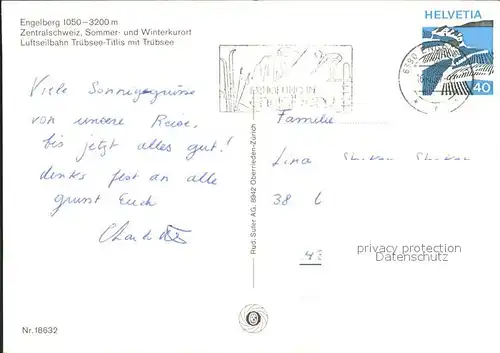 Engelberg 1050–3200 m
Zentralschweiz, Sommer- und Winterkurort
Luftseilbahn Trübsee-Titlis mit Trübsee
HELVETIA
40
6390
Viele Sonnigegrüsse
von unsere Reise,
bis jetzt alles gut!
denks fest an alle
grüsst Euch
Familie
Lina
38
Rud. Suter AG, 8942 Oberrieden-Zürich
privacy protection
Datenschutz
Nr. 18632